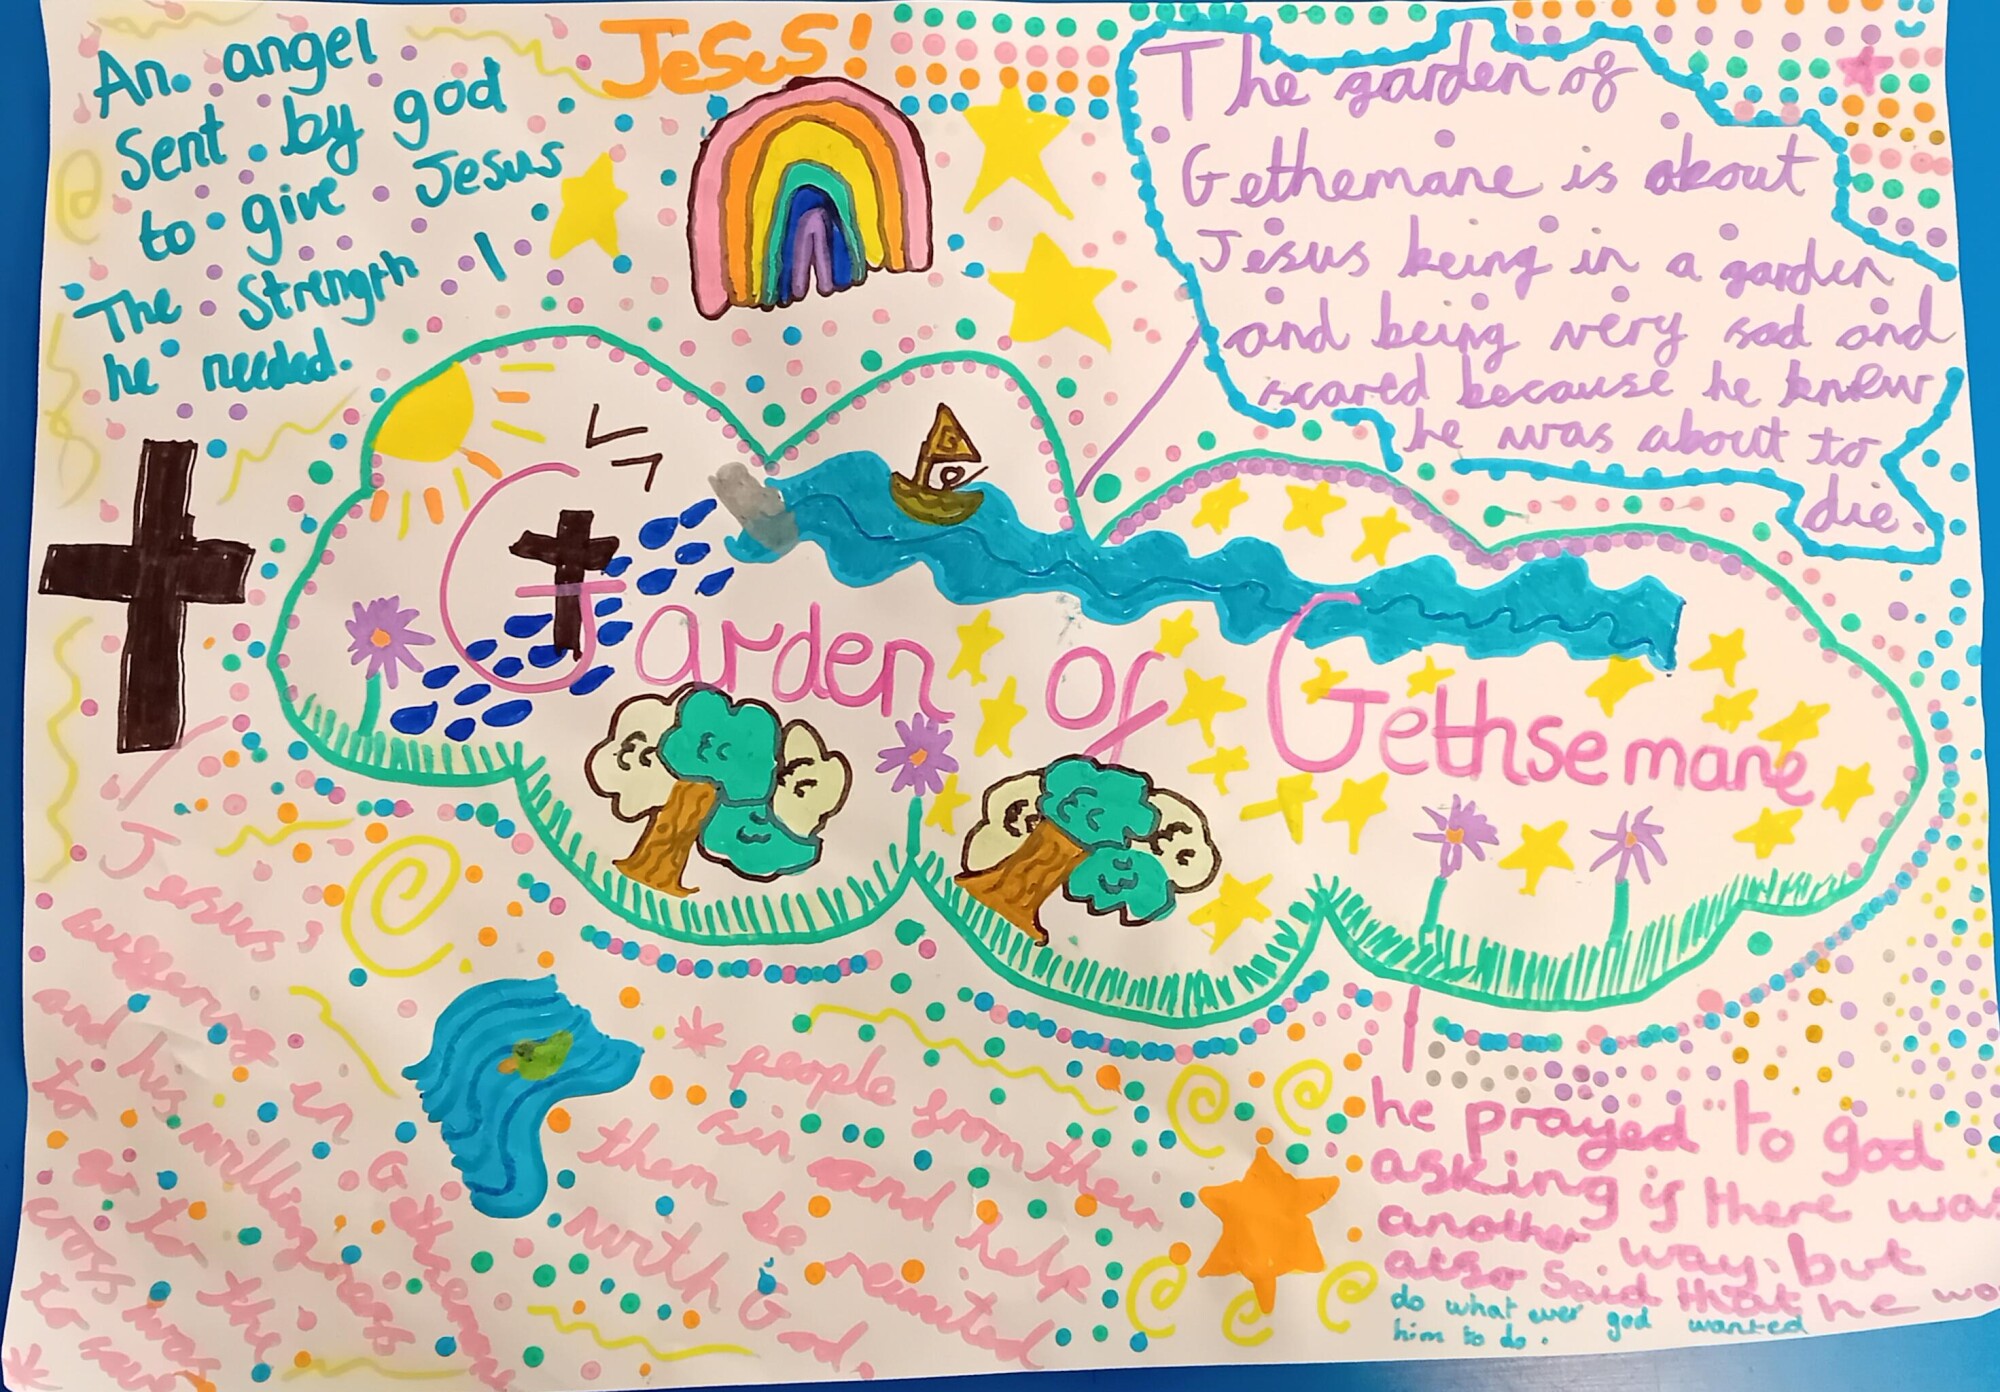 An. angel
Sent by god
to give Jesus
The Strength
he needed.
Jesus!
The garden of
Gethemane is about
Jesus being in a garden
and being very sad and
scared because he knew
he was about to
die.
Garden of Gethsemane
Jesus's
suffering in Gethemane
and his willingness
to go to the
cross was
to save
people from their
sin and help
them be reunited
with God.
he prayed to god
asking if there was
another way, but
also said that he wo
do what ever god wanted
him to do.